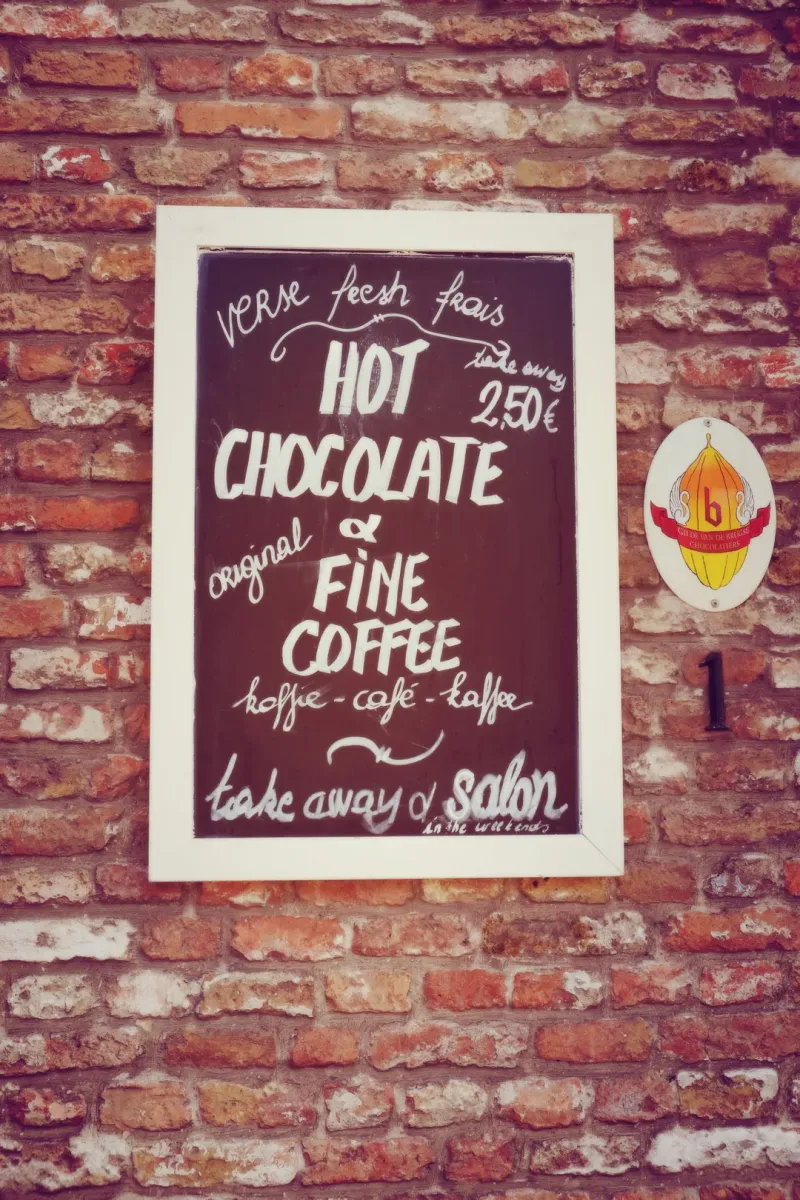 verse fresh frais
take away
2,50€
HOT
CHOCOLATE
&
original
FINE
COFFEE
koffie - café - kaffee
take away & salon
in the weekends
b
GILDE VAN DE BRUGSE
CHOCOLATIERS
1